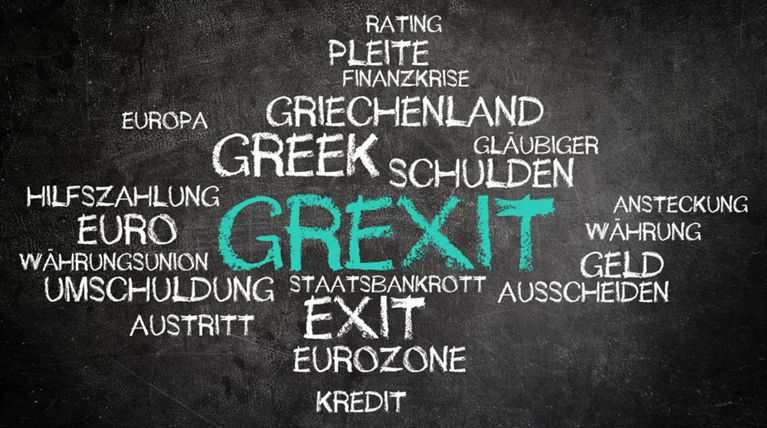 RATING
PLEITE
FINANZKRISE
GRIECHENLAND
EUROPA
GREEK
GLÄUBIGER
SCHULDEN
HILFSZAHLUNG
GREXIT
ANSTECKUNG
EURO
WÄHRUNG
WÄHRUNGSUNION
GELD
STAATSBANKROTT
UMSCHULDUNG
AUSSCHEIDEN
AUSTRITT
EXIT
EUROZONE
KREDIT